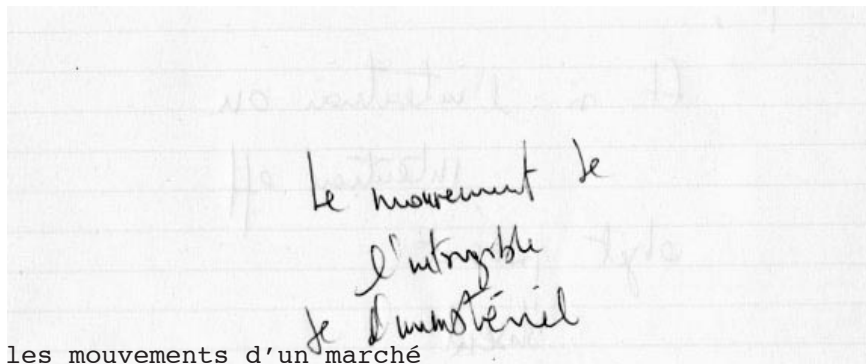 Le mouvement de
l'intangible
de l'immatériel
les mouvements d'un marché